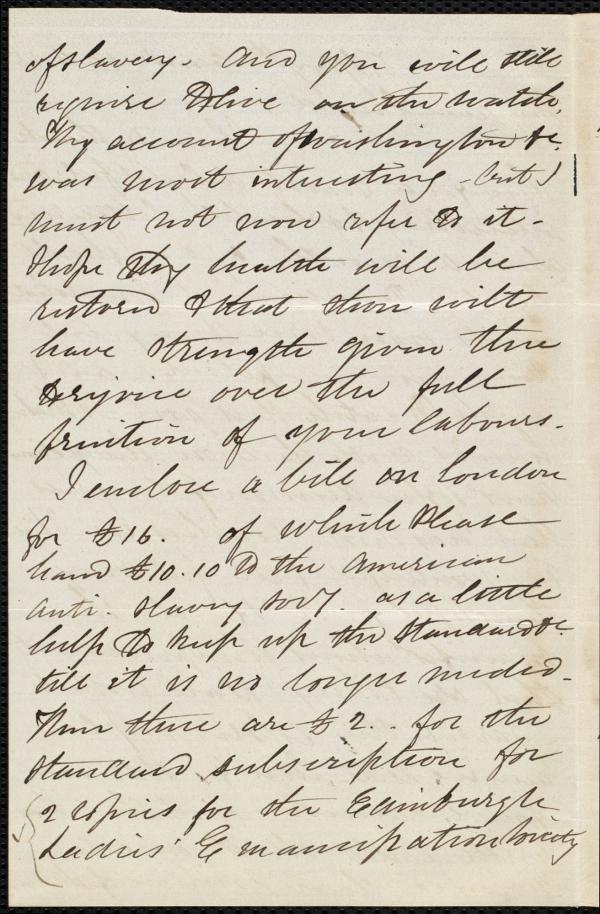 of slavery. And you will still
require to live on the watch,
Thy account of Washington &c.
was most interesting - but I
must not now refer to it -
I hope thy health will be
restored & that thou wilt
have strength given thee
to rejoice over the full
fruition of your labours.
I enclose a bill on London
for £16. of which please
hand £10.10 to the American
Anti. Slavery Socy. as a little
help to keep up the Standard &c.
till it is no longer needed.
Then there are £2.. for the
Standard subscription for
2 copies for the Edinburgh
Ladies' Emancipation Society